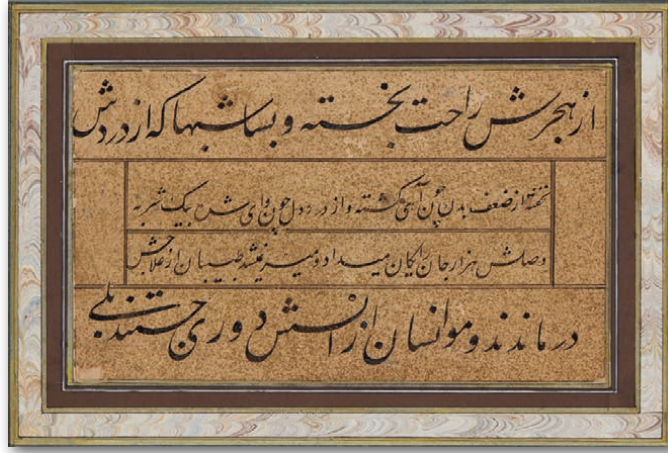 از هجرش راحت بخسته و بسا شبها که از دردش
نخفته از ضعف بدن چون گشته و از درد دل چون وای شد بیک شربه
وصلش هزار جان رایگان میداد و میسر نمیشد طبیبان از علاجش
درماندند و موانسان از انسش دوری جستند بلی